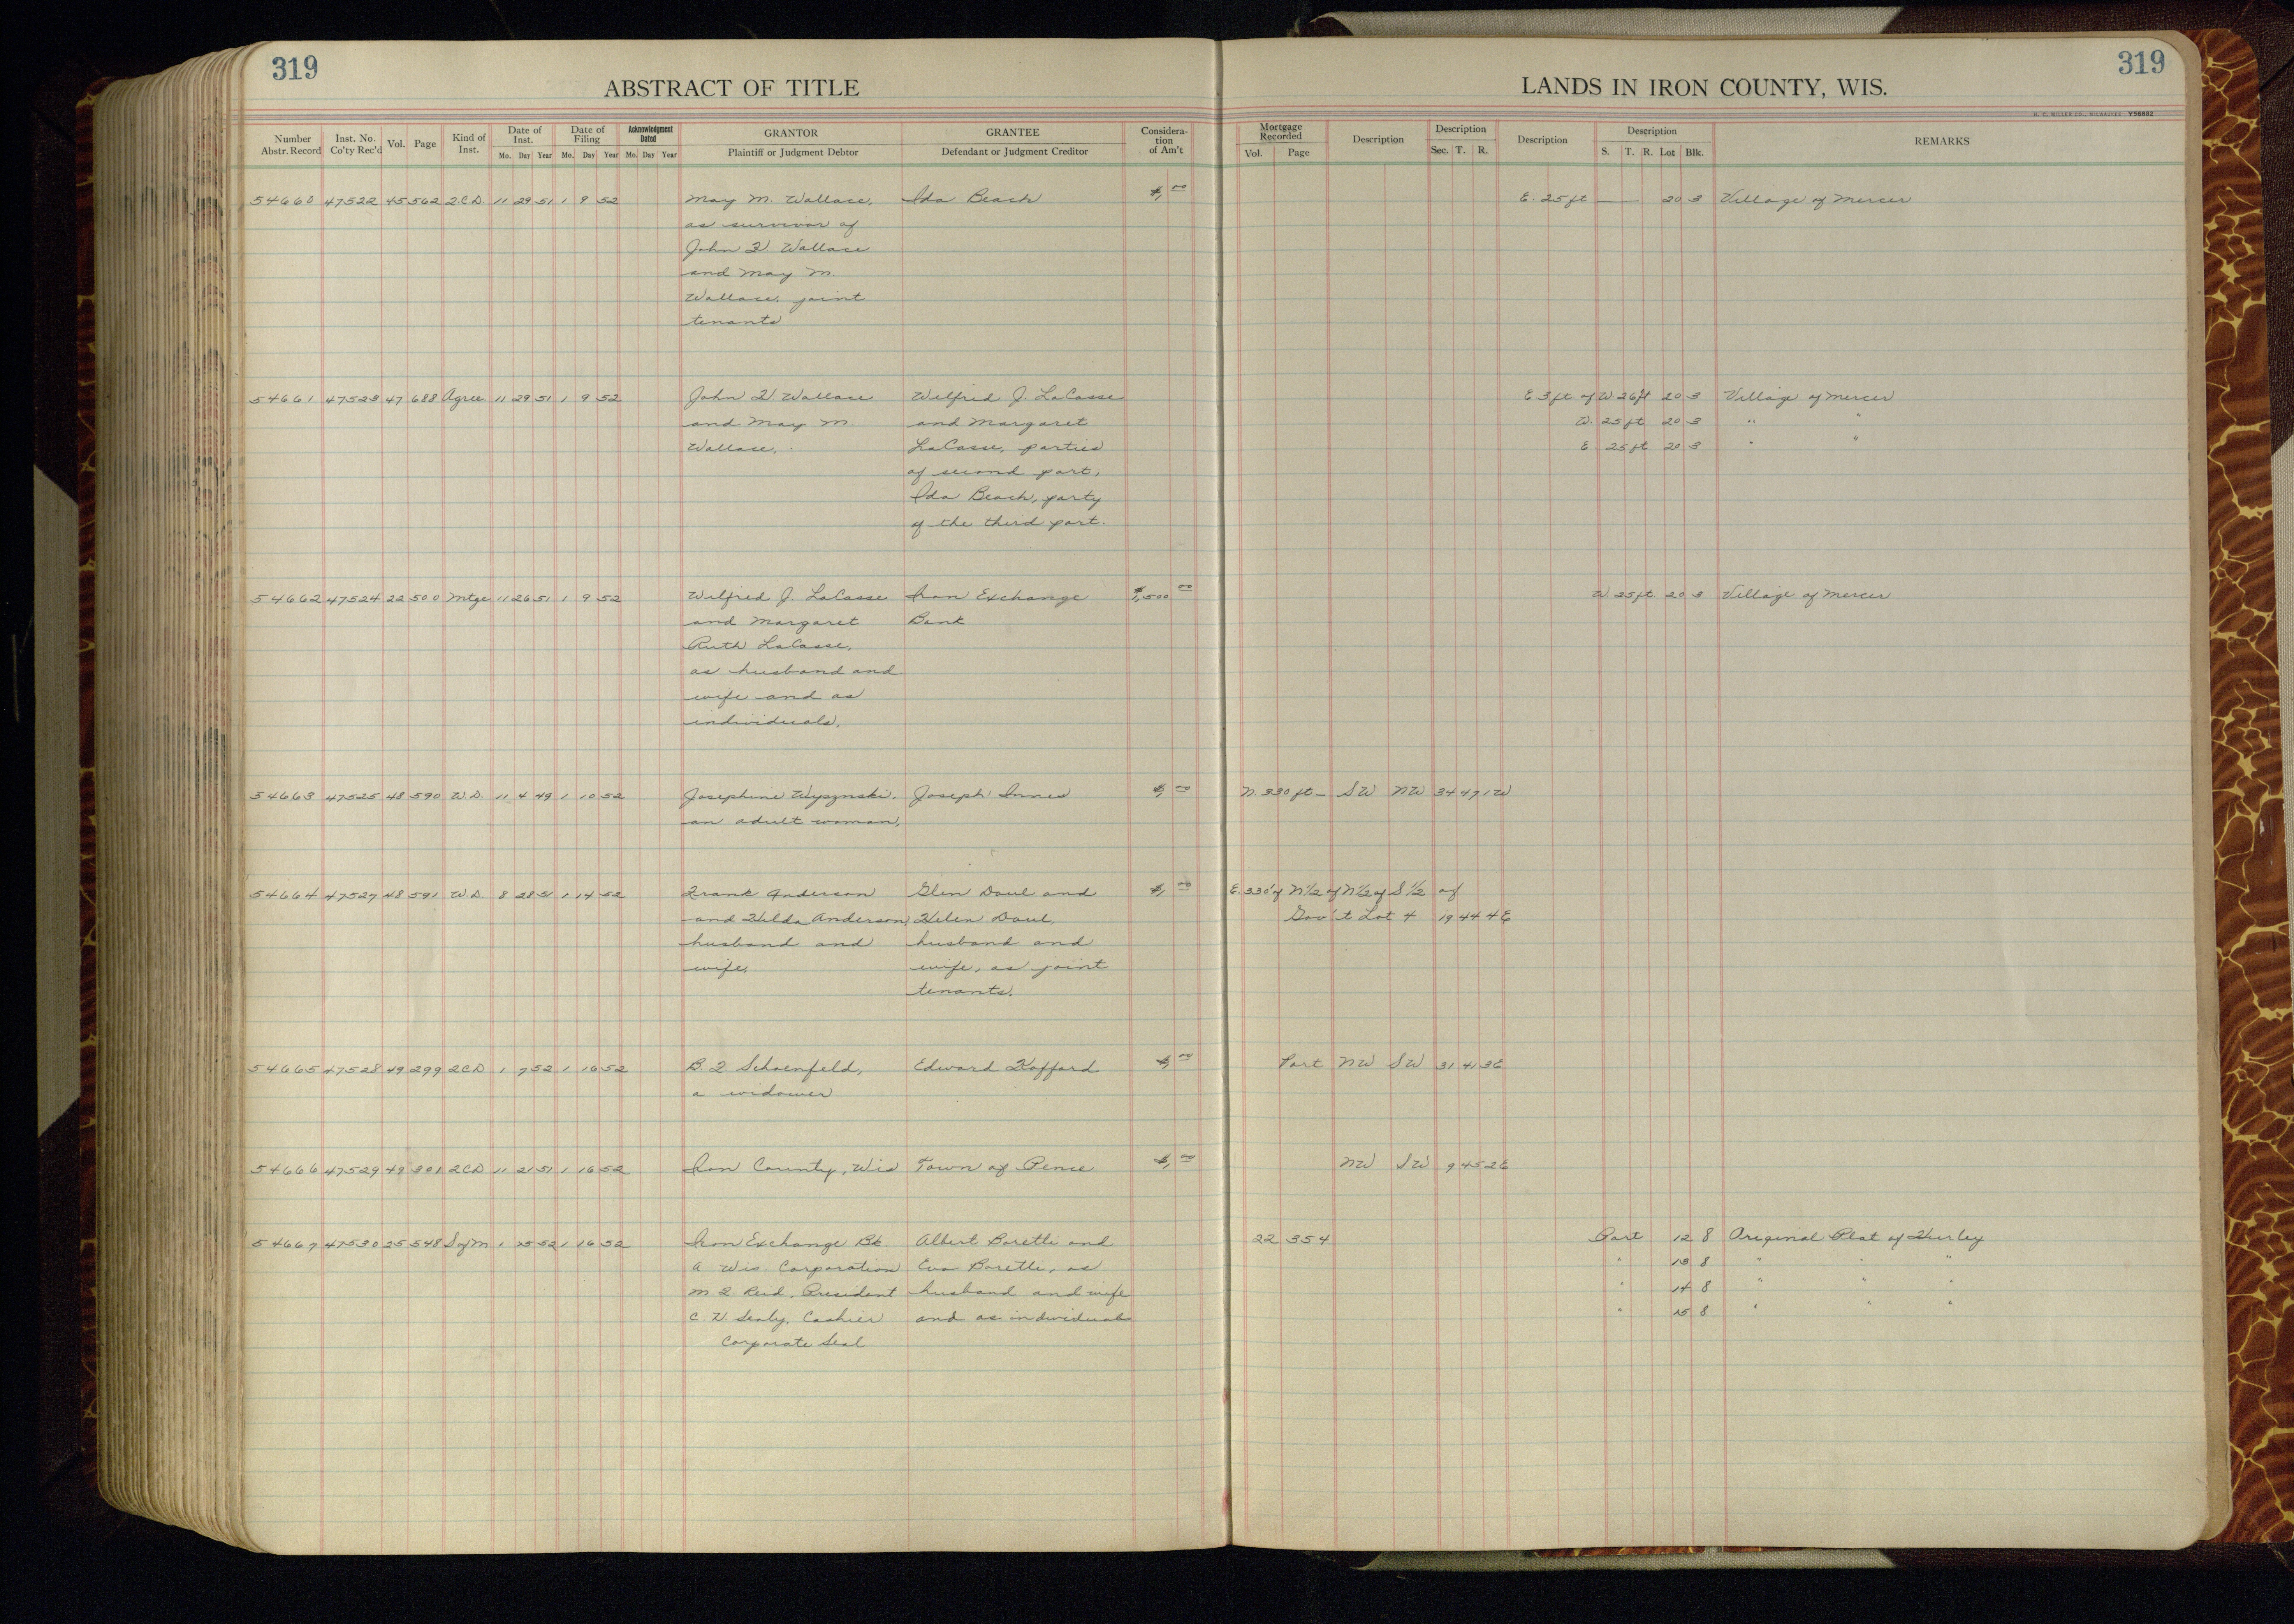 319
ABSTRACT OF TITLE
LANDS IN IRON COUNTY, WIS.
319
Number Abstr. Record Inst. No. Co'ty Rec'd Vol. Page Kind of Inst. Date of Inst. Mo. Day Year Date of Filing Mo. Day Year Acknowledgment Dated Mo. Day Year GRANTOR Plaintiff or Judgment Debtor GRANTEE Defendant or Judgment Creditor Considera-tion of Am't Mortgage Recorded Vol. Page Description Description Sec. T. R. Description Description S. T. R. Lot Blk. REMARKS
H. C. MILLER CO., MILWAUKEE Y56682
54660 47522 45 562 2CD 11 29 51 1 9 52 May M. Wallace, Ida Beach $1,00 E. 25 ft 20 3 Village of Mercer
as survivor of
John W. Wallace
and May M.
Wallace, joint
tenants
54661 47523 47 688 Agree 11 29 51 1 9 52 John W. Wallace Wilfred J. LaCasse E 3 ft of W 26 ft 20 3 Village of Mercer
and May M. and Margaret W. 25 ft 20 3 " "
Wallace, LaCasse, parties E. 25 ft 20 3 " "
of second part;
Ida Beach, party
of the third part.
54662 47524 22 500 Mtge 11 26 51 1 9 52 Wilfred J. LaCasse Iron Exchange $1,500 00 W 25 ft 20 3 Village of Mercer
and Margaret Bank
Ruth LaCasse,
as husband and
wife and as
individuals,
54663 47525 48 590 W.D. 11 4 49 1 10 52 Josephine Wyzynski, Joseph Innes $1,00 N. 330 ft - SW NW 34 47 1W
an adult woman,
54664 47527 48 591 W.D. 8 28 51 1 14 52 Frank Anderson Glen Daul and $1,00 E. 330' of N½ of N½ of S½ of
and Hilda Anderson, Helen Daul, Gov't Lot 4 19 44 4E
husband and husband and
wife, wife, as joint
tenants.
54665 47528 49 299 2CD 1 7 52 1 16 52 B. F. Schoenfeld, Edward Hafford $1,00 Part NW SW 31 41 3E
a widower
54666 47529 49 301 2CD 11 21 51 1 16 52 Iron County, Wis Town of Pence $1,00 NW SW 9 45 2E
54667 47530 25 548 S of M 1 15 52 1 16 52 Iron Exchange Bk. Albert Boretti and 22 354 Part 12 8 Original Plat of Hurley
A Wis. Corporation Eva Boretti, as " 13 8 " " "
M. F. Reid, President husband and wife " 14 8 " " "
C. W. Sealy, Cashier and as individuals " 15 8 " " "
Corporate Seal